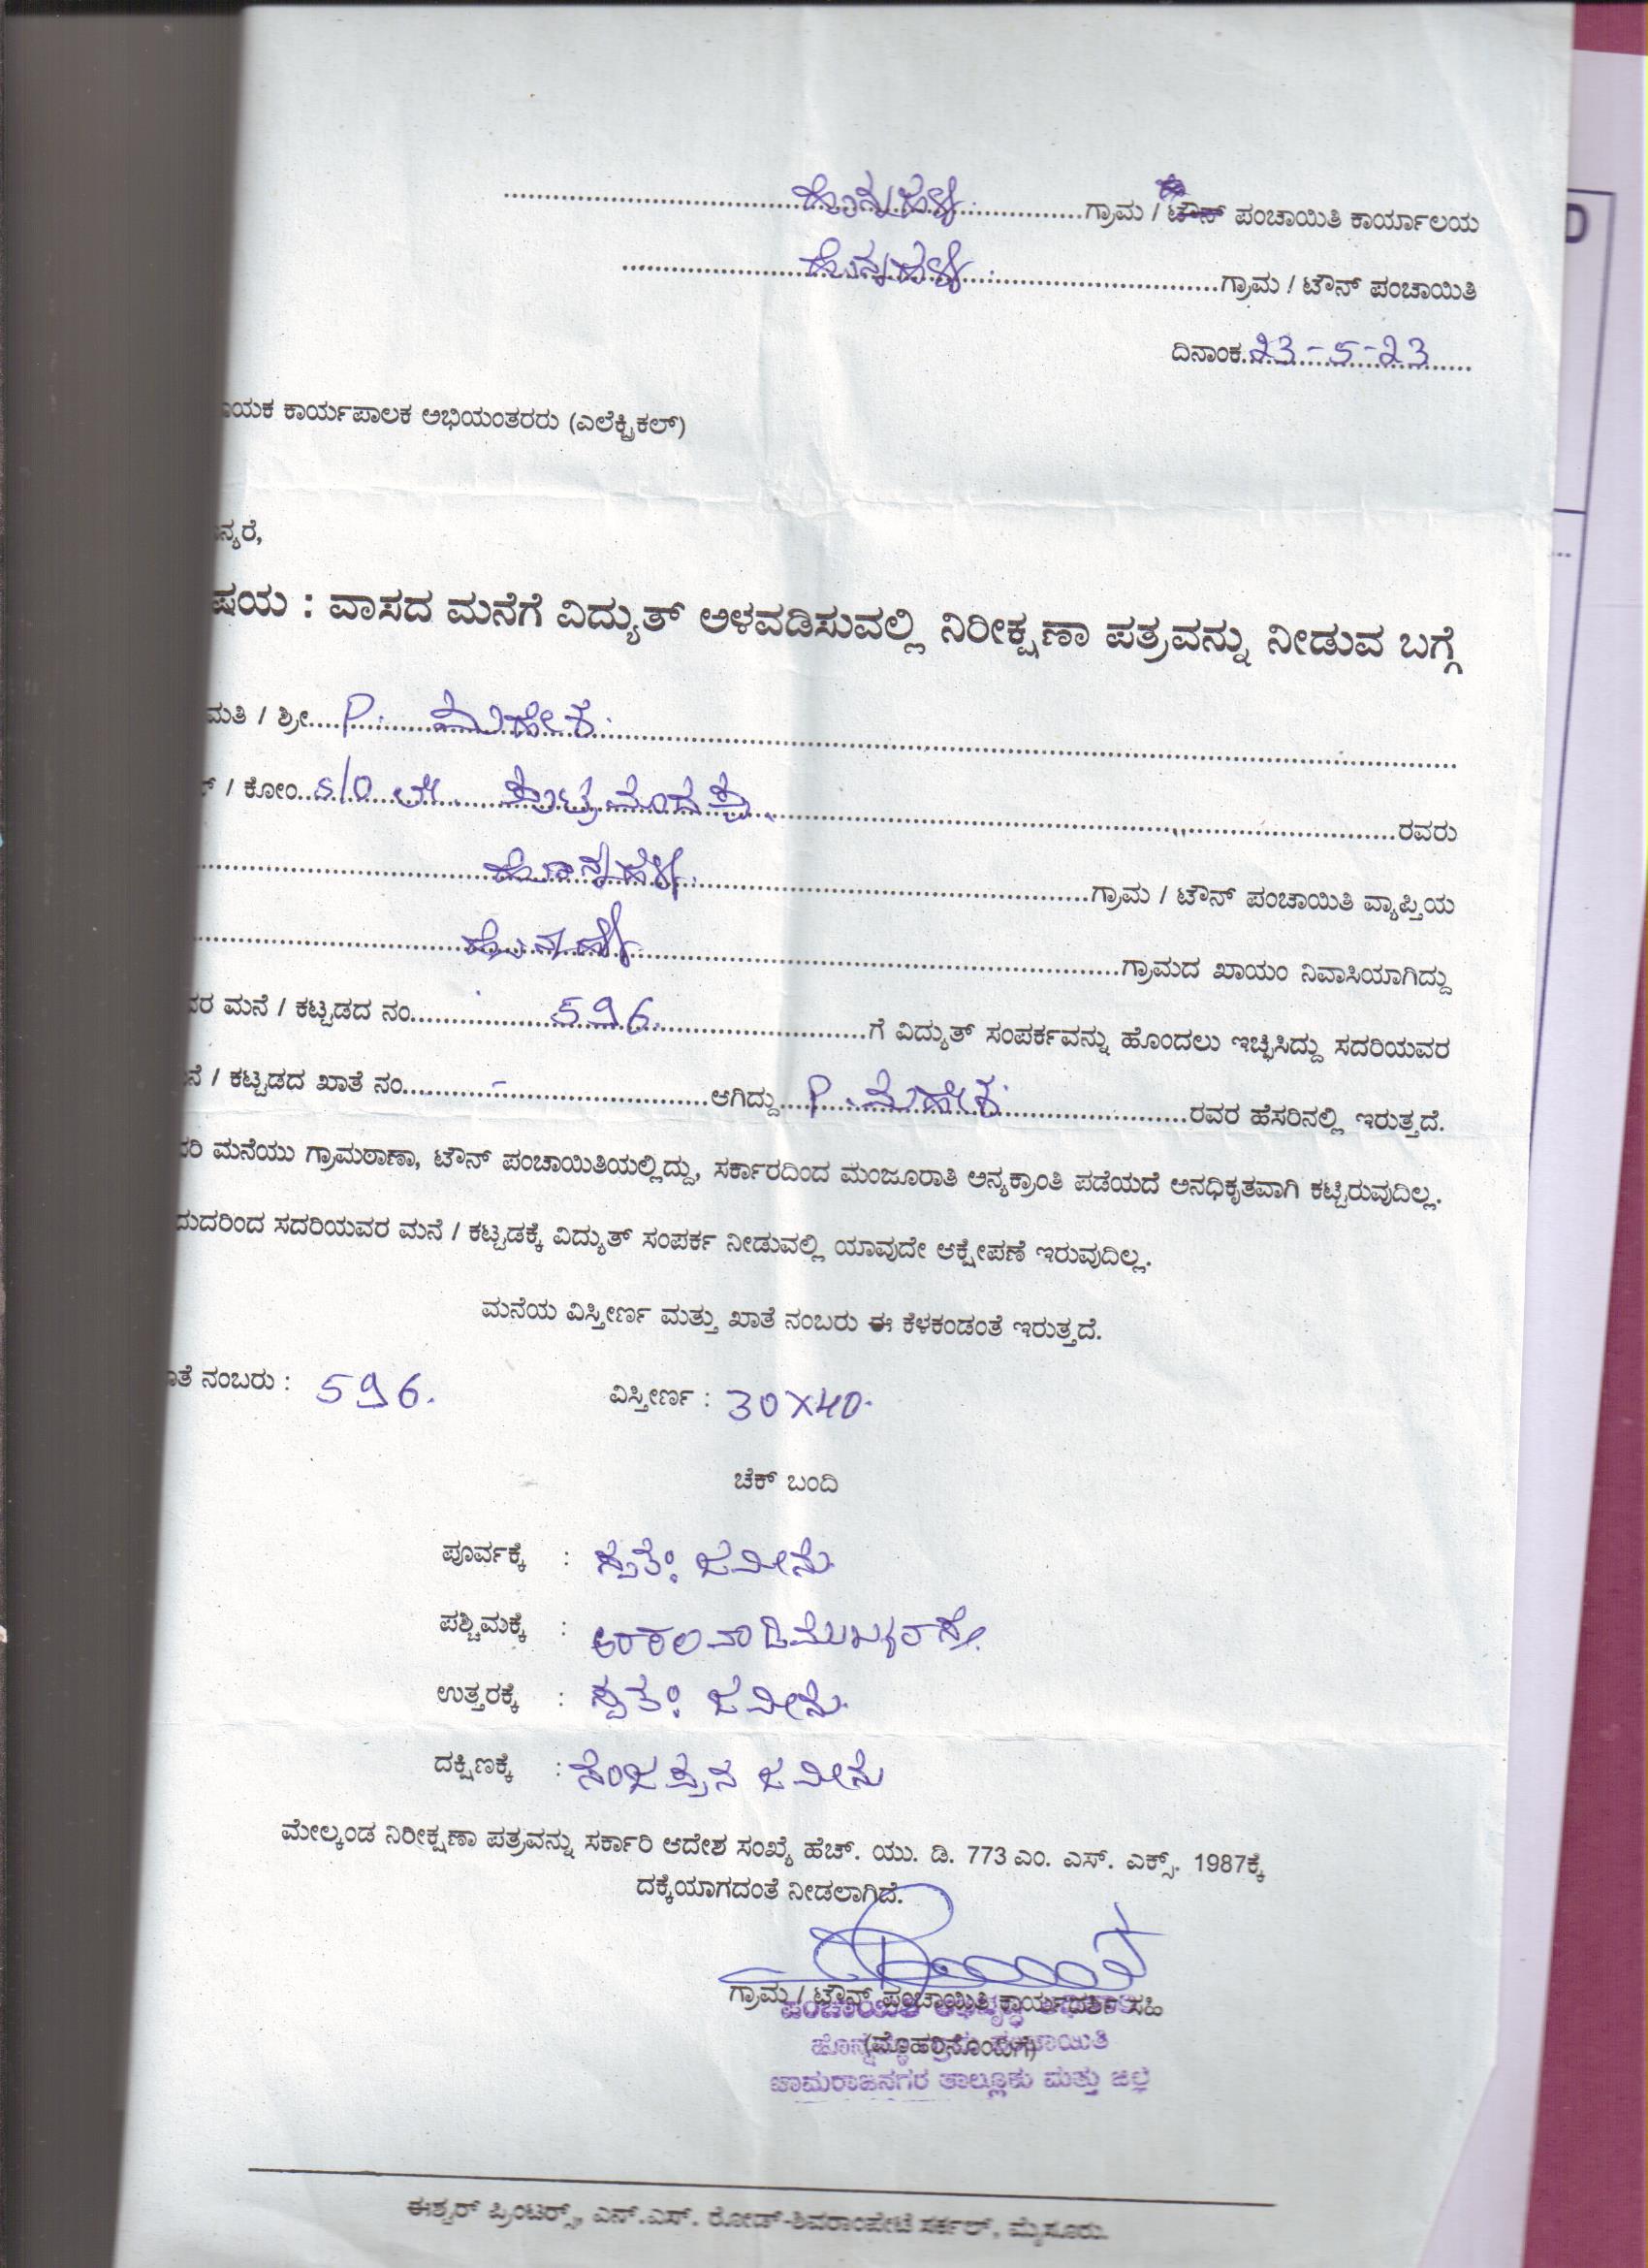 ಹೊನ್ನಹಳ್ಳಿ ಗ್ರಾಮ / ಟೌನ್ ಪಂಚಾಯಿತಿ ಕಾರ್ಯಾಲಯ
ಹೊನ್ನಹಳ್ಳಿ ಗ್ರಾಮ / ಟೌನ್ ಪಂಚಾಯಿತಿ
ದಿನಾಂಕ 23-5-23
ಾಯಕ ಕಾರ್ಯಪಾಲಕ ಅಭಿಯಂತರರು (ಎಲೆಕ್ಟ್ರಿಕಲ್)
ನ್ಯರೆ,
ಷಯ : ವಾಸದ ಮನೆಗೆ ವಿದ್ಯುತ್ ಅಳವಡಿಸುವಲ್ಲಿ ನಿರೀಕ್ಷಣಾ ಪತ್ರವನ್ನು ನೀಡುವ ಬಗ್ಗೆ
ಮತಿ / ಶ್ರೀ P. ಮಹೇಶ
/ ಕೋಂ S/O ಲೇ. ರವರು
ಹೊನ್ನಹಳ್ಳಿ ಗ್ರಾಮ / ಟೌನ್ ಪಂಚಾಯಿತಿ ವ್ಯಾಪ್ತಿಯ
ಹೊನ್ನಹಳ್ಳಿ ಗ್ರಾಮದ ಖಾಯಂ ನಿವಾಸಿಯಾಗಿದ್ದು
ವರ ಮನೆ / ಕಟ್ಟಡದ ನಂ 596 ಗೆ ವಿದ್ಯುತ್ ಸಂಪರ್ಕವನ್ನು ಹೊಂದಲು ಇಚ್ಛಿಸಿದ್ದು ಸದರಿಯವರ
ನೆ / ಕಟ್ಟಡದ ಖಾತೆ ನಂ - ಆಗಿದ್ದು P. ಮಹೇಶ ರವರ ಹೆಸರಿನಲ್ಲಿ ಇರುತ್ತದೆ.
ರಿ ಮನೆಯು ಗ್ರಾಮಠಾಣಾ, ಟೌನ್ ಪಂಚಾಯಿತಿಯಲ್ಲಿದ್ದು, ಸರ್ಕಾರದಿಂದ ಮಂಜೂರಾತಿ ಅನ್ಯಕ್ರಾಂತಿ ಪಡೆಯದೆ ಅನಧಿಕೃತವಾಗಿ ಕಟ್ಟಿರುವುದಿಲ್ಲ.
ದುದರಿಂದ ಸದರಿಯವರ ಮನೆ / ಕಟ್ಟಡಕ್ಕೆ ವಿದ್ಯುತ್ ಸಂಪರ್ಕ ನೀಡುವಲ್ಲಿ ಯಾವುದೇ ಆಕ್ಷೇಪಣೆ ಇರುವುದಿಲ್ಲ.
ಮನೆಯ ವಿಸ್ತೀರ್ಣ ಮತ್ತು ಖಾತೆ ನಂಬರು ಈ ಕೆಳಕಂಡಂತೆ ಇರುತ್ತದೆ.
ತೆ ನಂಬರು : 596. ವಿಸ್ತೀರ್ಣ : 30X40.
ಚೆಕ್ ಬಂದಿ
ಪೂರ್ವಕ್ಕೆ : ಸ್ವತಃ ಜಮೀನು
ಪಶ್ಚಿಮಕ್ಕೆ : ಅರಕಲವಾಡಿ ಮುಖ್ಯರಸ್ತೆ.
ಉತ್ತರಕ್ಕೆ : ಸ್ವತಃ ಜಮೀನು
ದಕ್ಷಿಣಕ್ಕೆ : ಜಮೀನು
ಮೇಲ್ಕಂಡ ನಿರೀಕ್ಷಣಾ ಪತ್ರವನ್ನು ಸರ್ಕಾರಿ ಆದೇಶ ಸಂಖ್ಯೆ ಹೆಚ್. ಯು. ಡಿ. 773 ಎಂ. ಎಸ್. ಎಕ್ಸ್. 1987ಕ್ಕೆ
ದಕ್ಕೆಯಾಗದಂತೆ ನೀಡಲಾಗಿದೆ.
ಗ್ರಾಮ / ಟೌನ್ ಪಂಚಾಯಿತಿ ಕಾರ್ಯದರ್ಶಿ ಸಹಿ
(ಮೊಹರಿನೊಂದಿಗೆ)
ಚಾಮರಾಜನಗರ ತಾಲ್ಲೂಕು ಮತ್ತು ಜಿಲ್ಲೆ
ಈಶ್ವರ್ ಪ್ರಿಂಟರ್ಸ್, ಎನ್.ಎಸ್. ರೋಡ್-ಶಿವರಾಂಪೇಟೆ ಸರ್ಕಲ್, ಮೈಸೂರು.